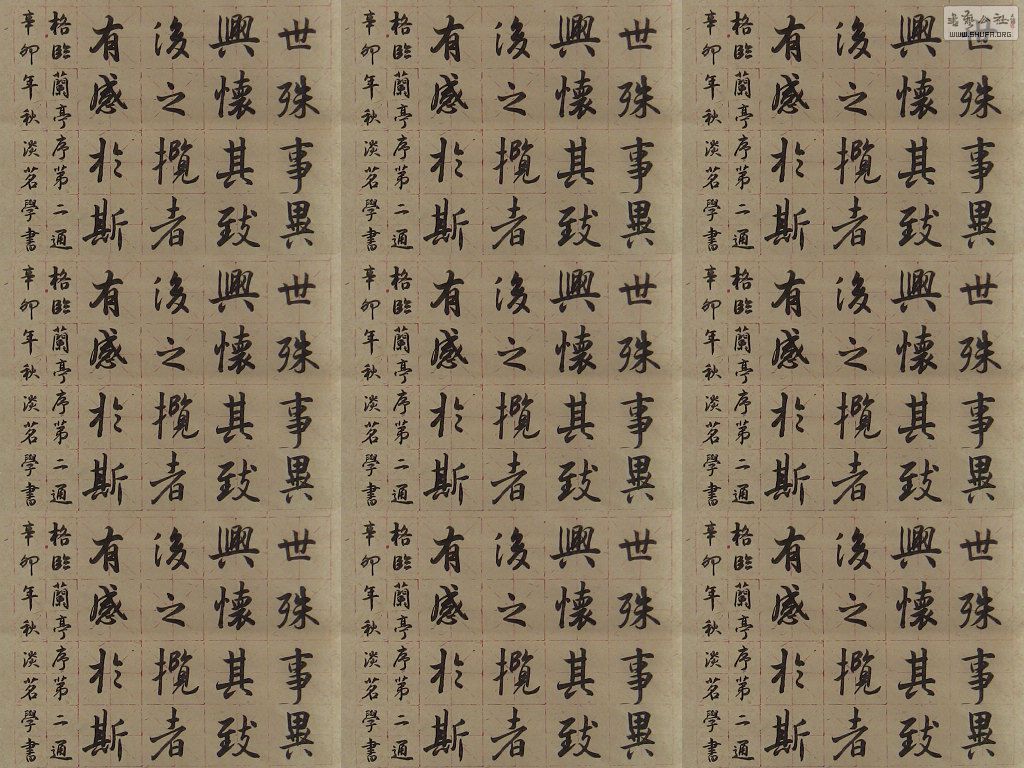 世殊事異
興懷其致
後之攬者
有感於斯
格臨蘭亭序第二通
辛卯年秋淡茗學書
世殊事異
興懷其致
後之攬者
有感於斯
格臨蘭亭序第二通
辛卯年秋淡茗學書
世殊事異
興懷其致
後之攬者
有感於斯
格臨蘭亭序第二通
辛卯年秋淡茗學書
世殊事異
興懷其致
後之攬者
有感於斯
格臨蘭亭序第二通
辛卯年秋淡茗學書
世殊事異
興懷其致
後之攬者
有感於斯
格臨蘭亭序第二通
辛卯年秋淡茗學書
世殊事異
興懷其致
後之攬者
有感於斯
格臨蘭亭序第二通
辛卯年秋淡茗學書
世殊事異
興懷其致
後之攬者
有感於斯
格臨蘭亭序第二通
辛卯年秋淡茗學書
世殊事異
興懷其致
後之攬者
有感於斯
格臨蘭亭序第二通
辛卯年秋淡茗學書
世殊事異
興懷其致
後之攬者
有感於斯
格臨蘭亭序第二通
辛卯年秋淡茗學書
WWW.SHUFA.ORG